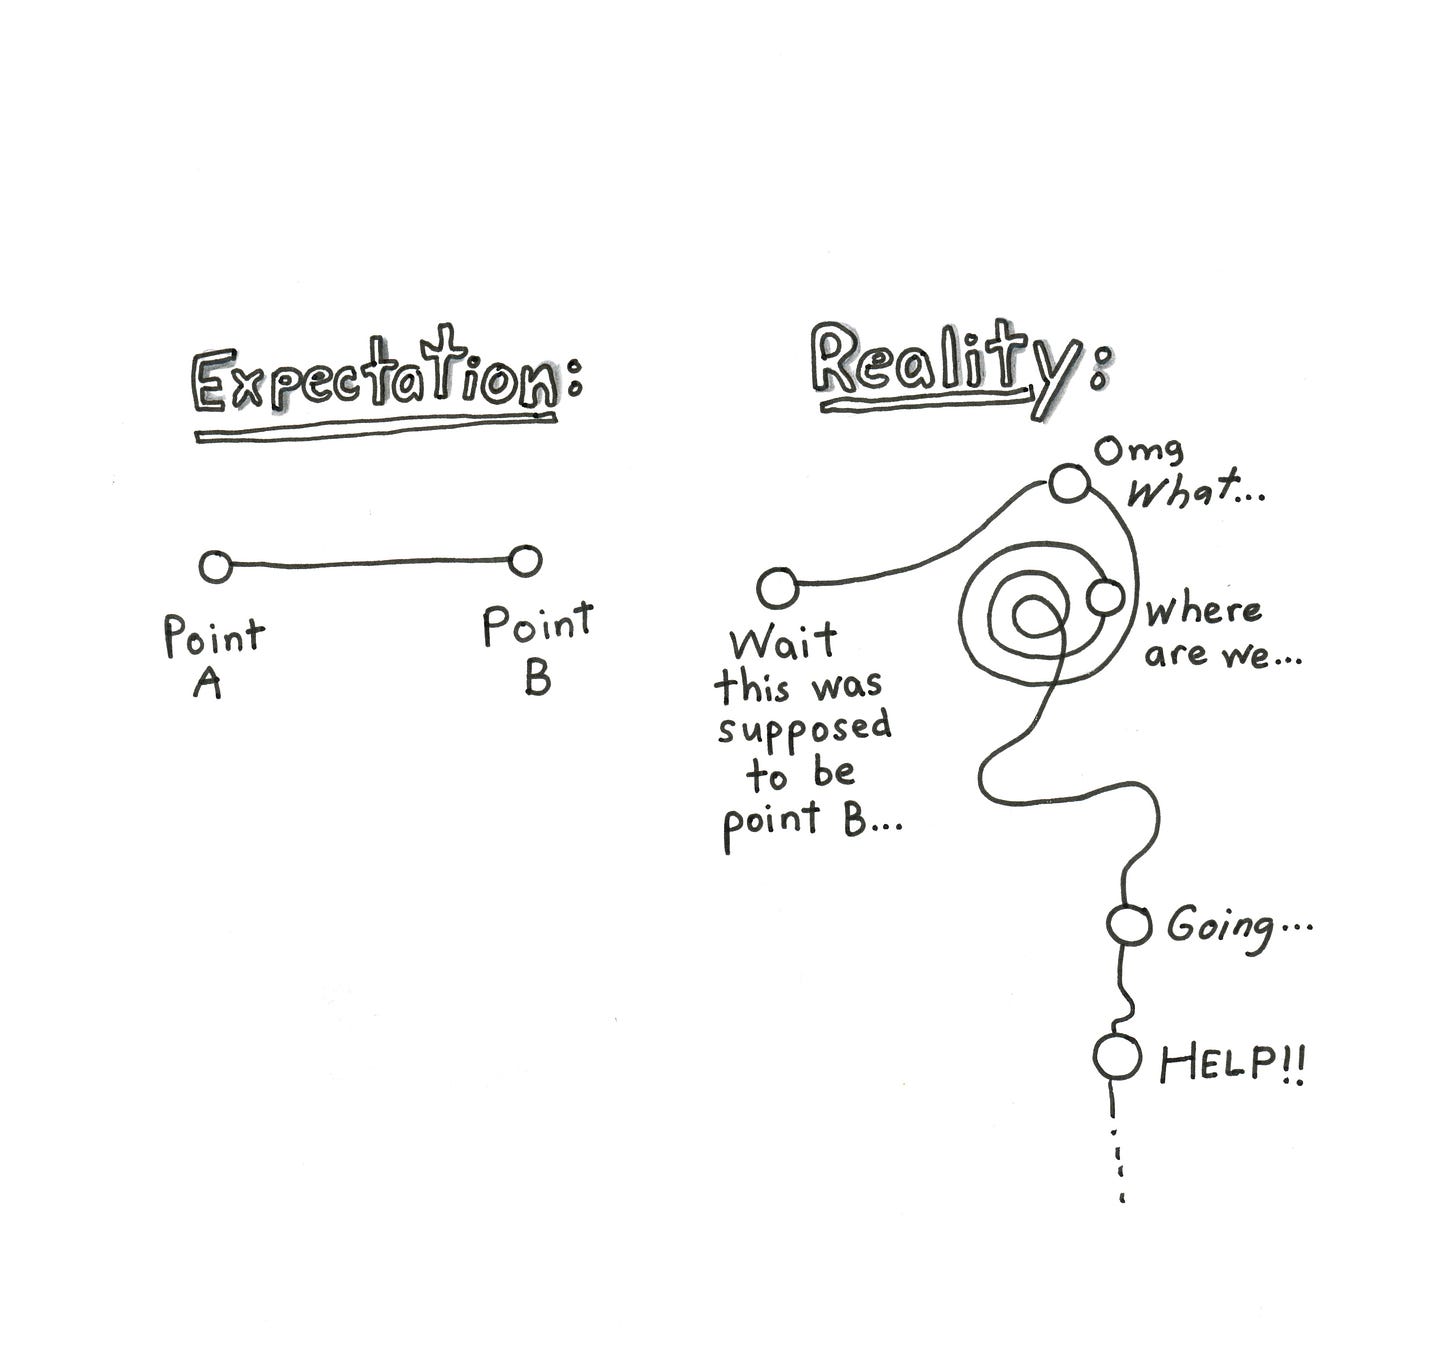 Expectation:
Point
A
Point
B
Reality:
Wait
this was
supposed
to be
point B...
Omg
What...
Where
are we...
Going...
HELP!!